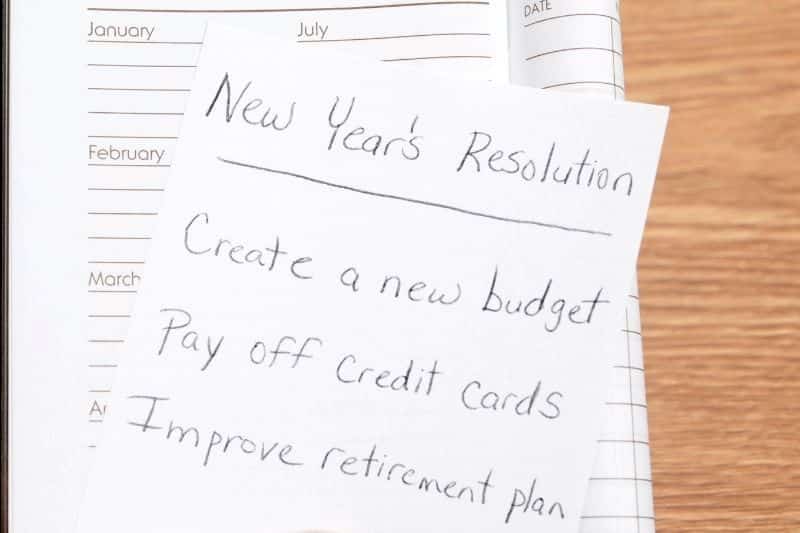 January
July
DATE
February
March
New Year's Resolution
Create a new budget
Pay off credit cards
Improve retirement plan